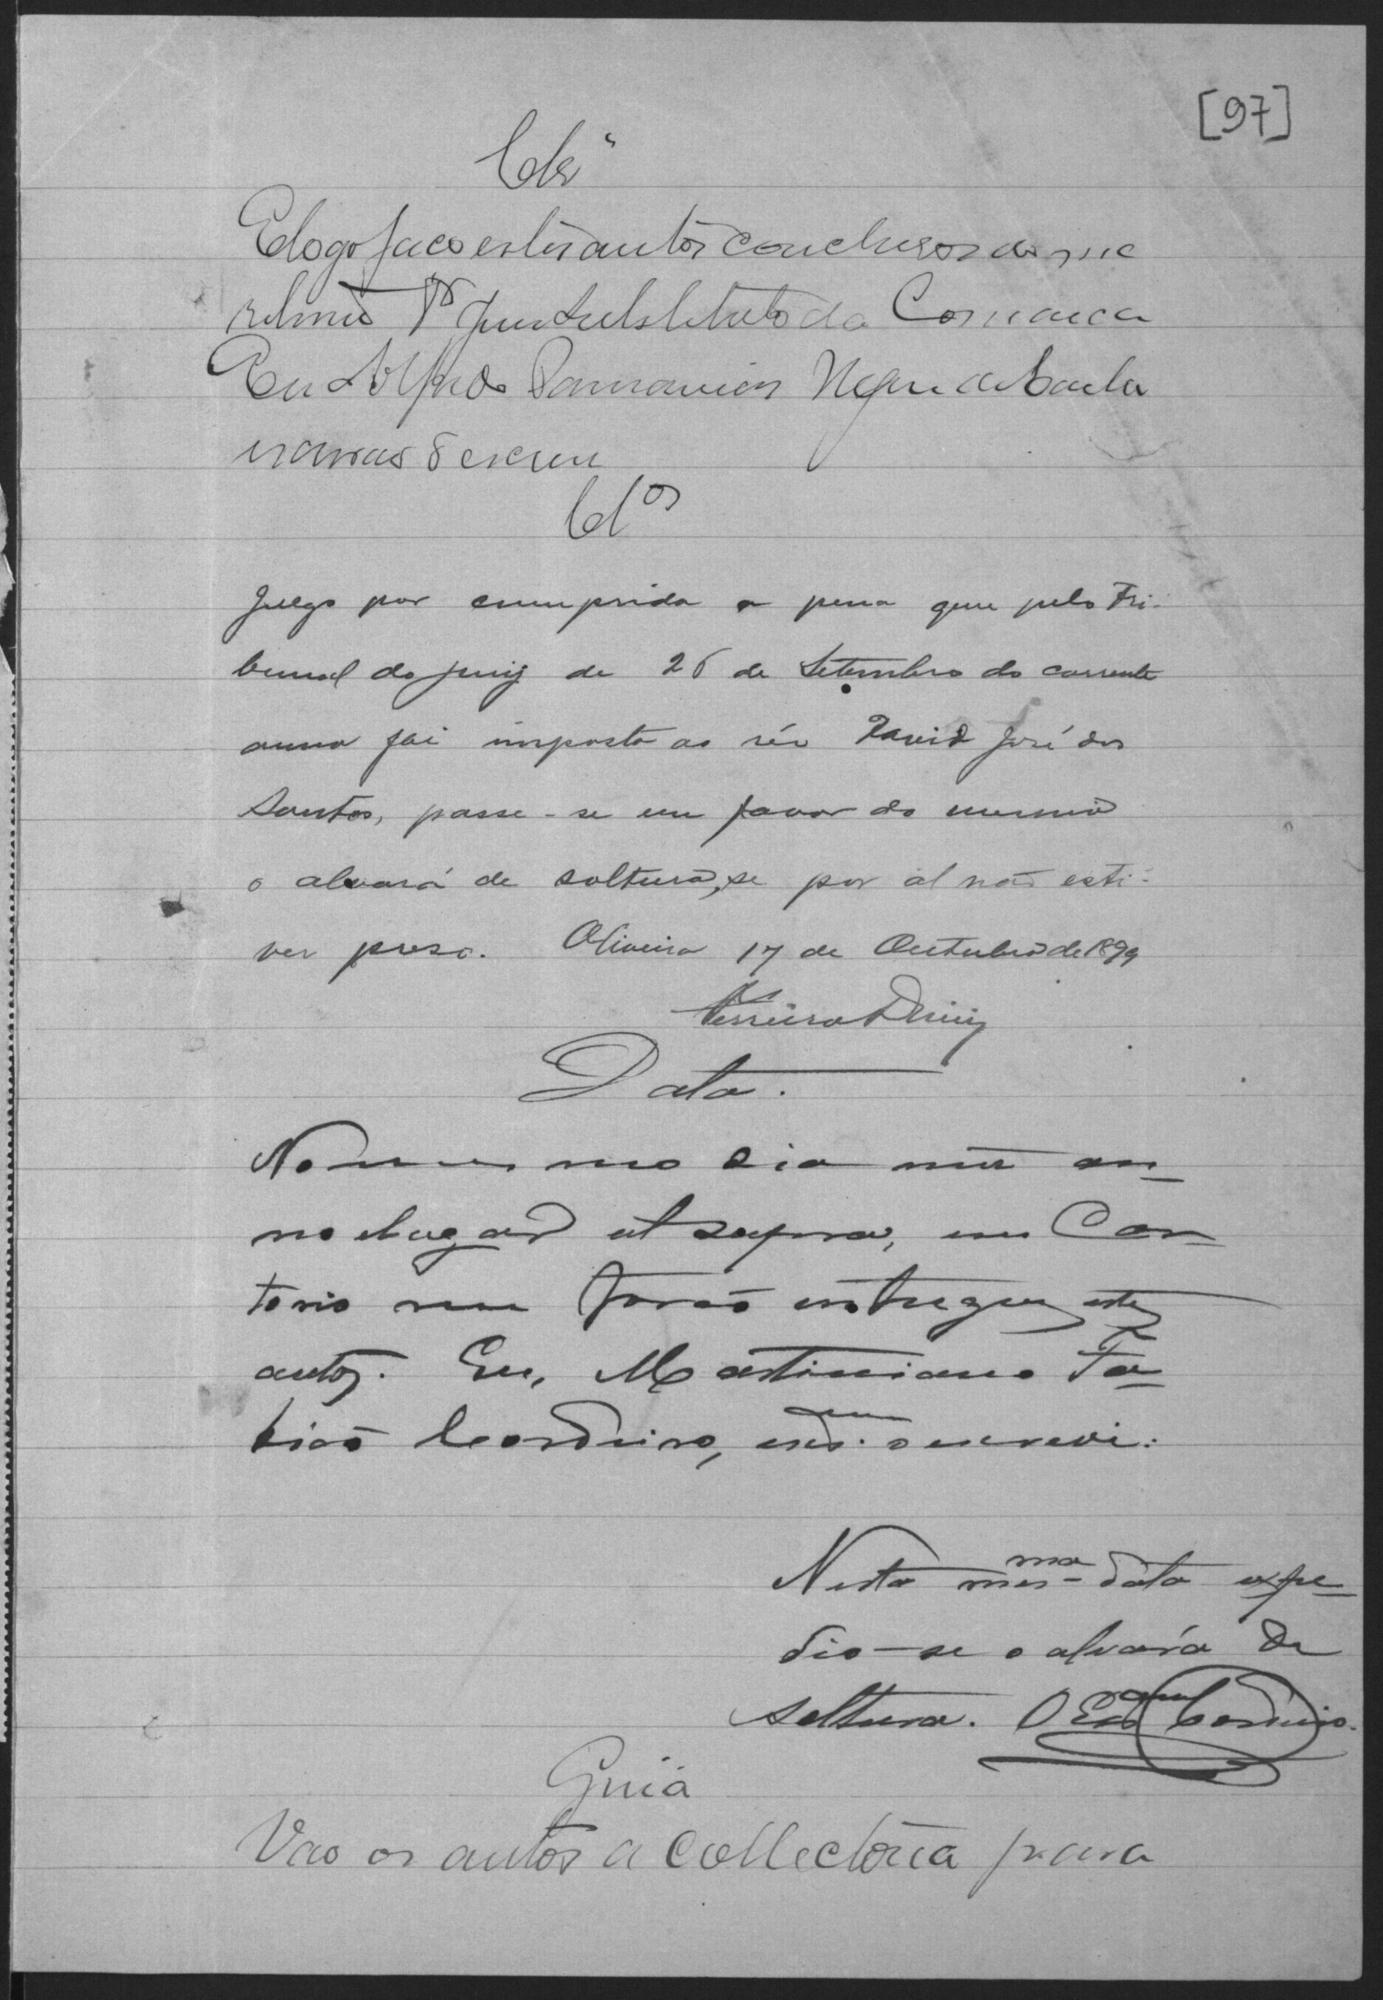 [97]
Cls
E logo faco estes autos conclusos ao me
retmo Dr Juis Substetuto da Comarca
Eu Alfredo Negre de
escreu
Clos
Julgo por cumprida a pena que pelo Tri-
bunal do jury de 26 de Setembro do corrente
anno foi imposta ao réu David José dos
Santos, passe-se em favor do mesmo
o alvará de soltura, se por al não esti-
ver preso. Oliveira 17 de Outubro de 1899
Ferreira Diniz
Data.
No mesmo dia mez an-
no e lugar ut supra, em Car-
torio me forão entregues estes
autos. Eu, Martiniano Fa-
bião Cordeiro, escam. o escrevi.
Nesta mesma data expe-
dio-se o alvará de
soltura. O Escam Cordeiro.
Guia
Vao os autos a Collectoria para